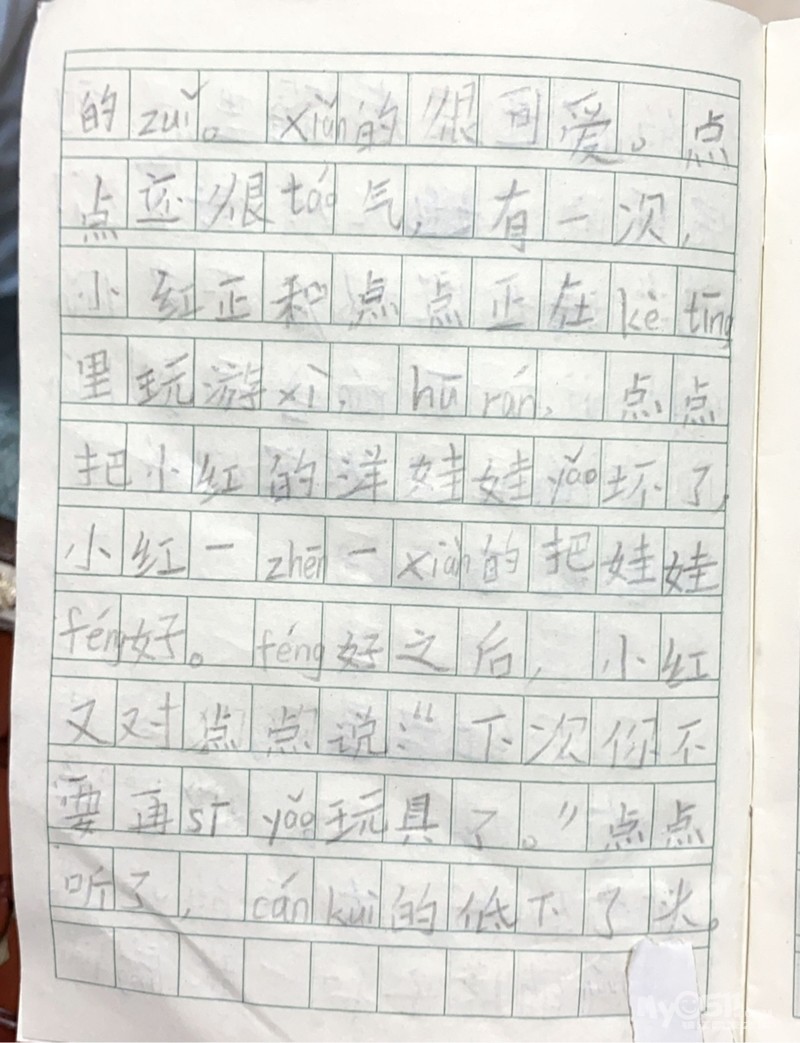 的zuǐ。xiǎn的很可爱。点
点还很táo气,有一次,
小红正和点点正在kè tīng
里玩游xì,hū rán,点点
把小红的洋娃娃yǎo坏了,
小红一zhēn一xiàn的把娃娃
féng好。féng好之后,小红
又对点点说:“下次你不
要再sī yǎo玩具了。”点点
听了,cán kuì的低下了头。